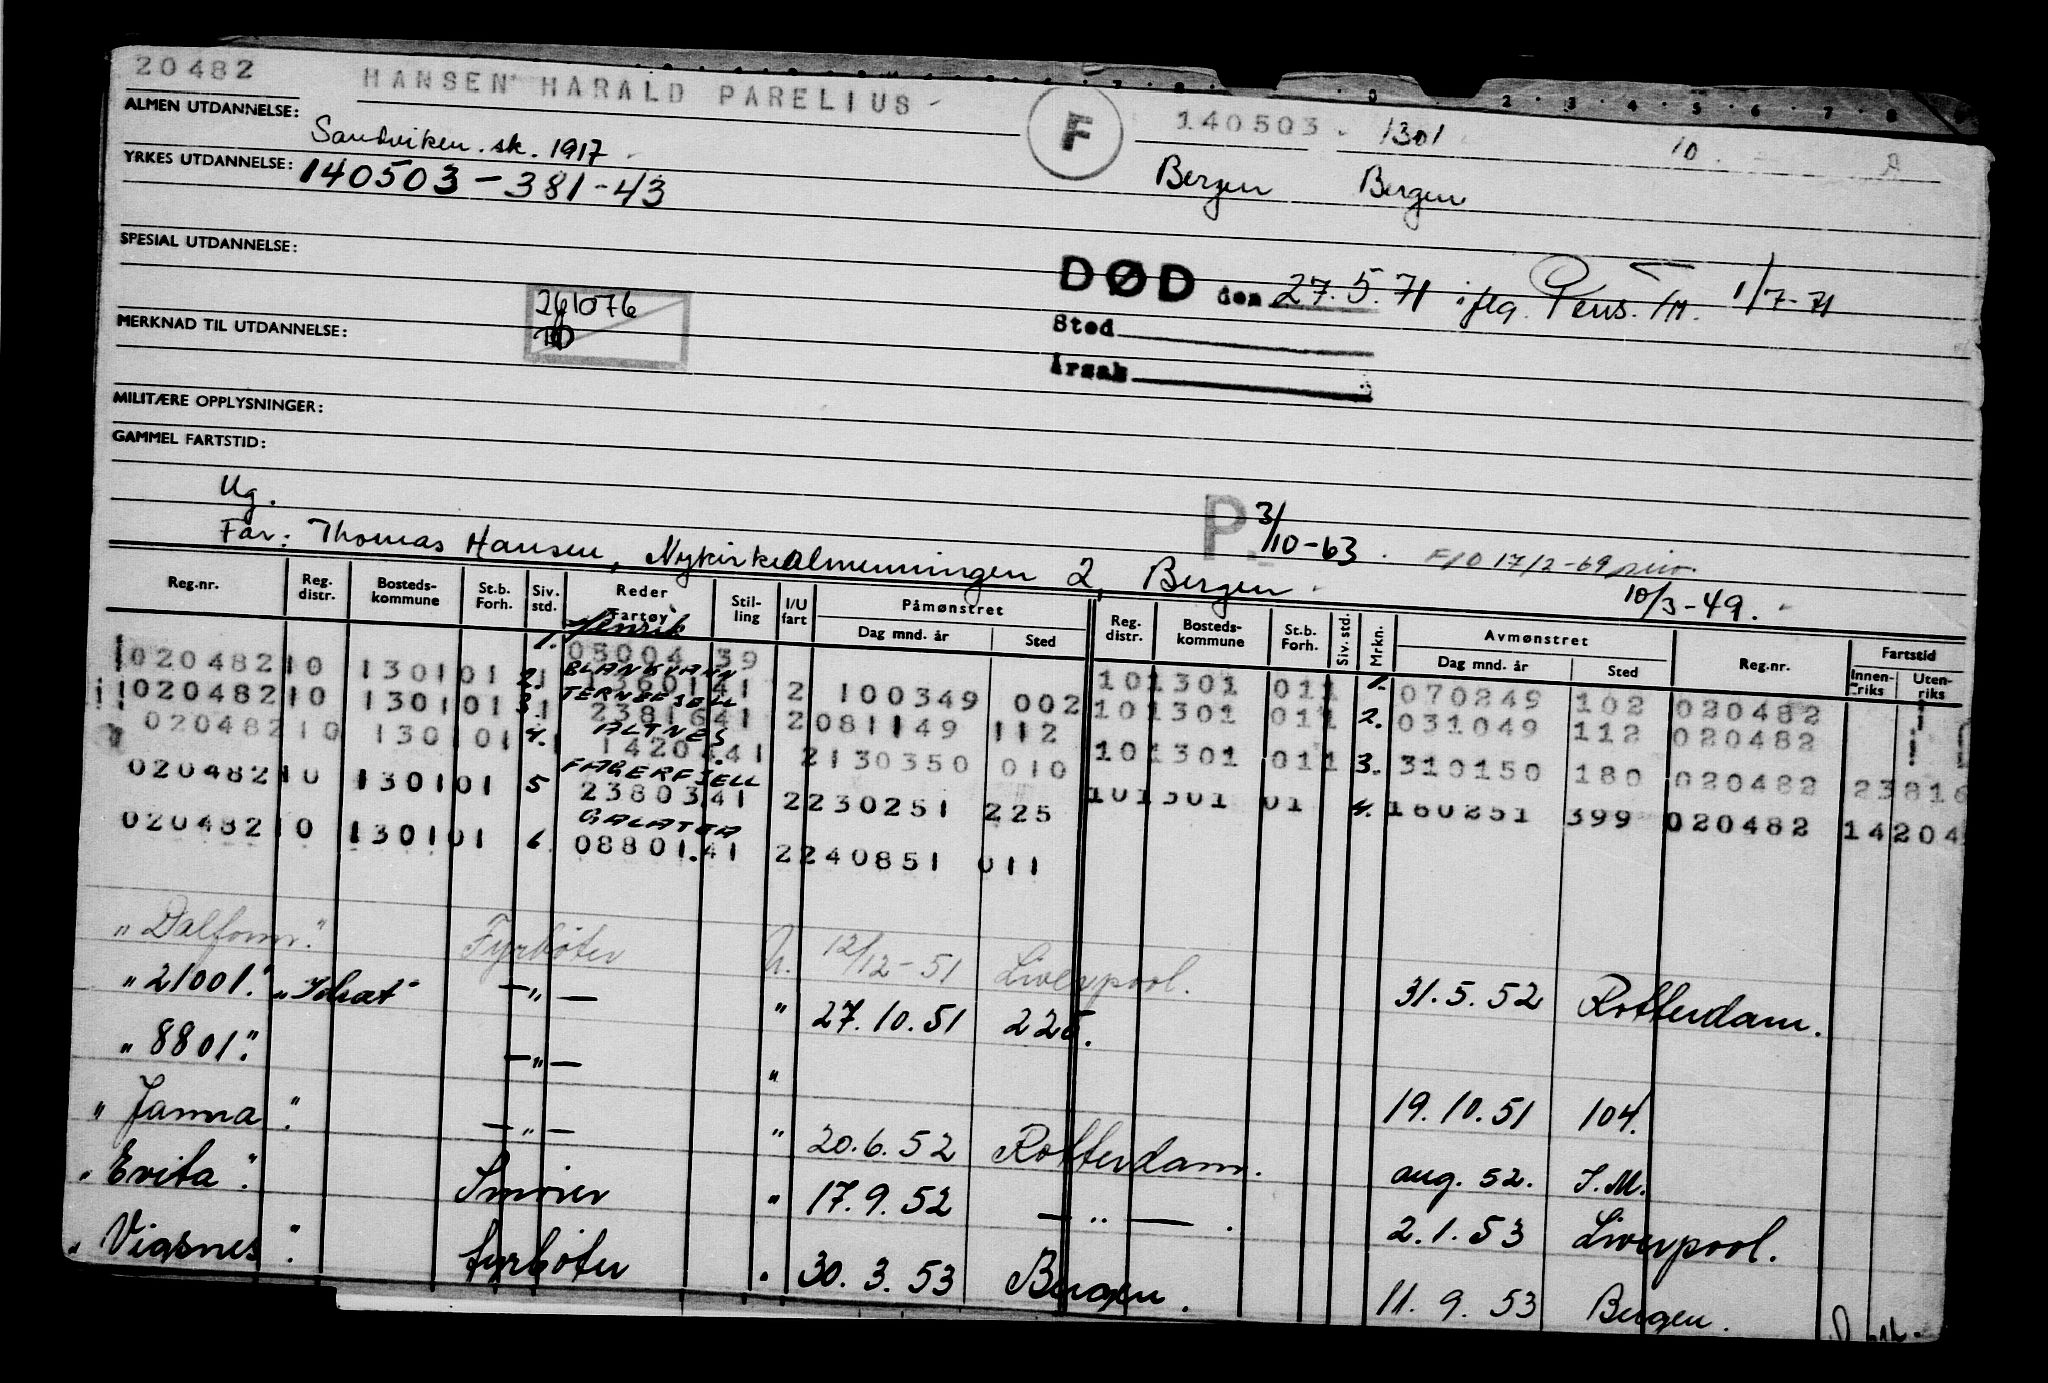 20482 HANSEN HARALD PARELIUS F 140503 1301 10
ALMEN UTDANNELSE: Sandviken. sk. 1917 Bergen Bergen
YRKES UTDANNELSE: 140503-381-43
SPESIAL UTDANNELSE:
DØD den 27.5.71 iflg. Pens. 1/7-71
Sted
Årsak
261076
MERKNAD TIL UTDANNELSE:
MILITÆRE OPPLYSNINGER:
GAMMEL FARTSTID:
Ug. P. 3/10-63
Far: Thomas Hansen, Nykirkealmenningen 2, Bergen F/O 17/2-69 10/3-49.
Reg.nr. Reg. distr. Bosteds-kommune St.b. Forh. Siv. std. Reder Fartøy Stil-ling I/U fart Påmønstret Dag mnd. år Sted Reg. distr. Bosteds-kommune St.b. Forh. Siv. std. Mrkn. Avmønstret Dag mnd. år Sted Reg.nr. Fartstid Innen-riks Uten-riks
1. Henrik
020482 10 1301 01 1 05004 39 101301 011 1. 070249 102 020482
2. BLANKVANN
020482 10 1301 01 1 41 2 100349 002 101301 011 2. 031049 112 020482
3. TERNEFJELL
020482 10 1301 01 1 23816 41 2 081149 112 101301 011 3. 310150 180 020482 23816
4. ALTNES
14204 41 2 130350 010
020482 10 1301 01 5 FAGERFJELL
23803 41 2 230251 225 101301 01 4. 160251 399 020482 14204
020482 10 1301 01 6. GALATEA
08801.41 2 240851 011
"Dalfonn." Fyrbøter U. 12/12-51 Liverpool. 31.5.52 Rotterdam.
"21001." -"- " 27.10.51 225.
"8801." -"- " 19.10.51 104.
"Janna" -"- " 20.6.52 Rotterdam. aug. 52. I.M.
"Evita". Smører " 17.9.52 -"- . 2.1.53 Liverpool.
"Vigsnes". fyrbøter " 30.3.53 Bergen. 11.9.53 Bergen.